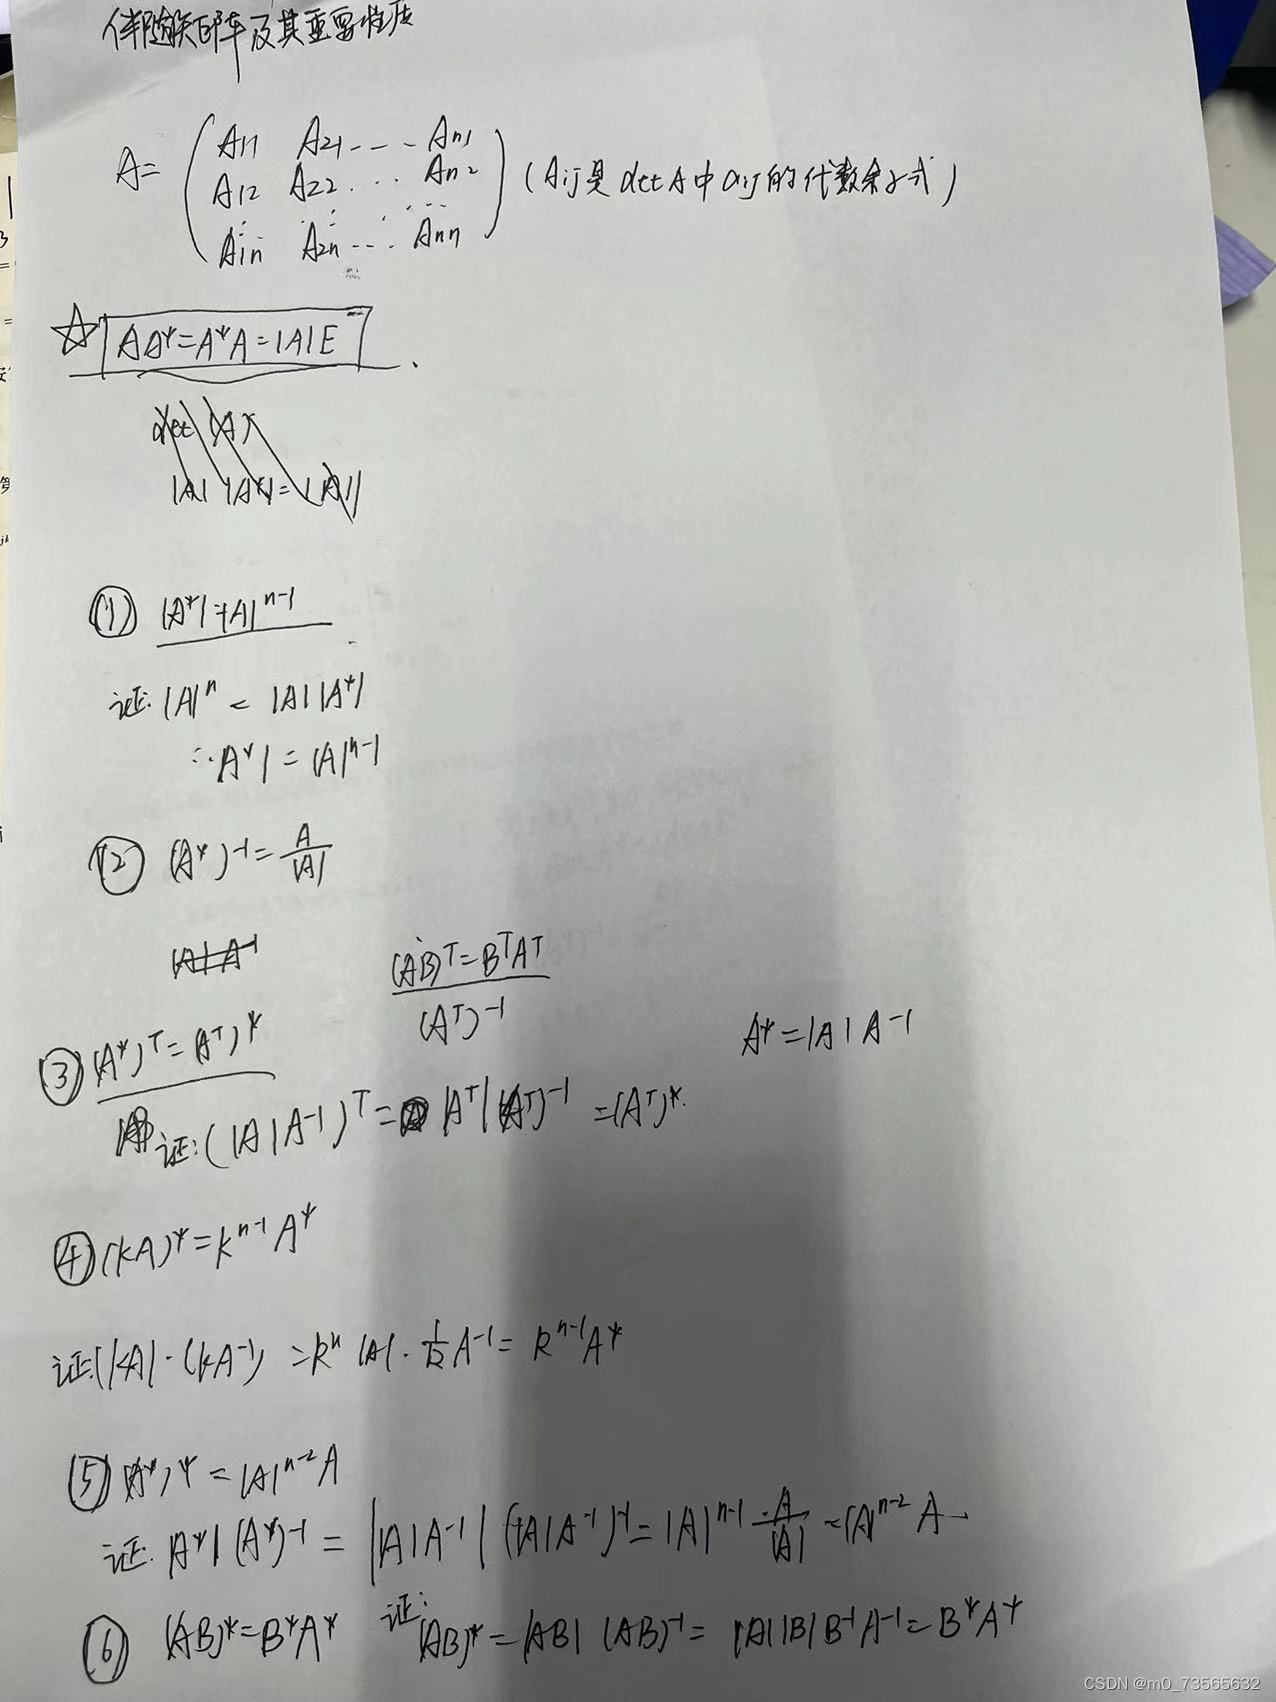 伴随矩阵及其重要性质
A= ( A11 A21 - - - An1
A12 A22 ... An2
⋮ ⋮ ...
A1n A2n ... Ann ) (Aij是detA中aij的代数余子式)
☆ AA*=A*A=|A|E
det (A)
|A| |A*|= |A|
① |A*|=|A|^{n-1}
证: |A|^n = |A||A*|
∴|A*| = |A|^{n-1}
② (A*)^{-1}= A/|A|
|A| A^{-1}
(AB)^T=B^TA^T
(A^T)^{-1}
A*=|A|A^{-1}
③ (A*)^T=(A^T)*
证:(|A|A^{-1})^T= |A^T|(A^T)^{-1} =(A^T)*.
④ (kA)*=k^{n-1}A*
证:(|kA|·(kA^{-1}) =k^n |A|·1/k A^{-1}= k^{n-1}A*
⑤ (A*)* = |A|^{n-2}A
证: |A*|(A*)^{-1} = ||A|A^{-1}| (|A|A^{-1})^{-1}= |A|^{n-1}·A/|A| =|A|^{n-2} A
⑥ (AB)*=B*A* 证: (AB)*=|AB| (AB)^{-1}= |A||B|B^{-1}A^{-1}=B*A*
CSDN @m0_73565632